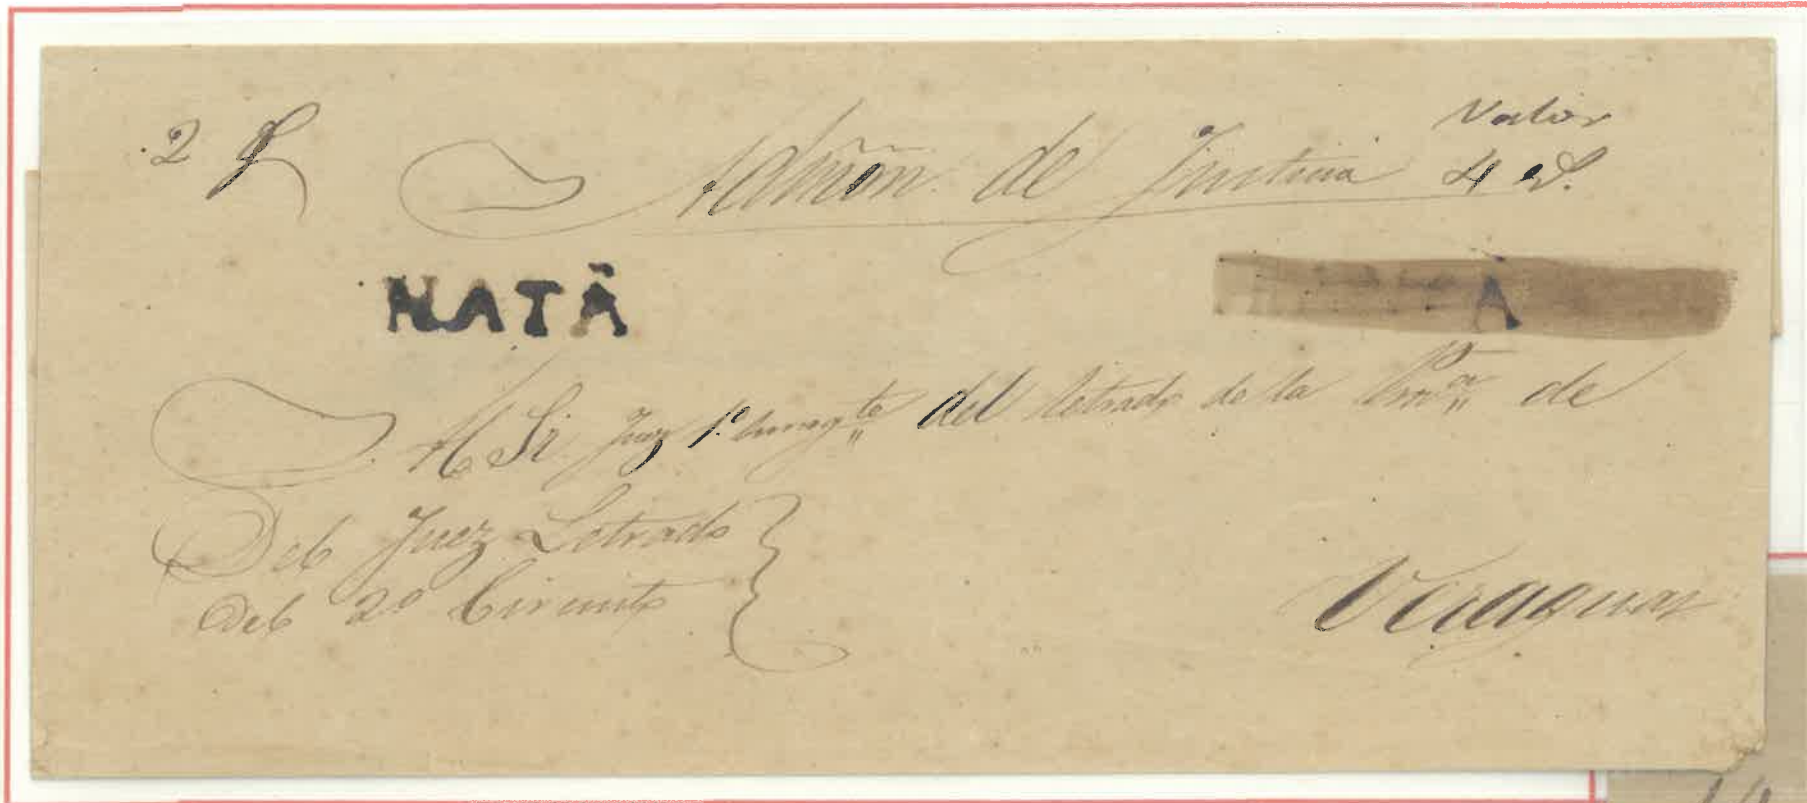 2 Admõn. de Justicia Valor
4 r.
NATÃ
Al Sr. Juez 1º del letrado de la de
Del Juez Letrado
del 2º Circuito
Veraguas